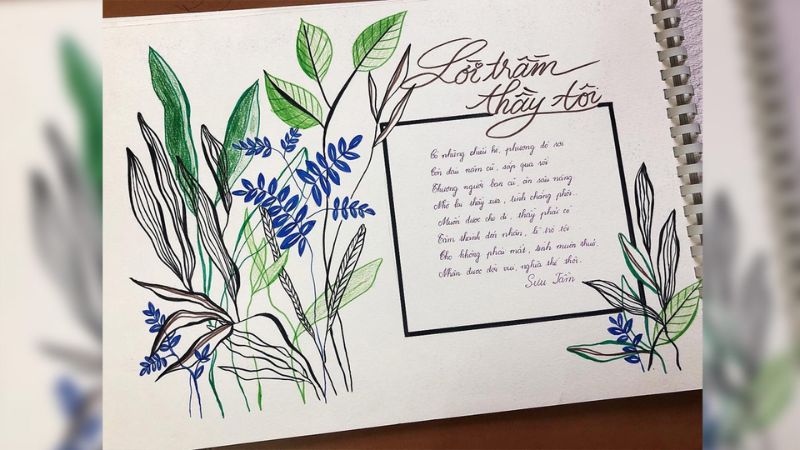 Lời trầm
thầy tôi
Có những chiều hè, phượng đỏ rơi
Còn đâu năm cũ, sắp qua rồi
Thương người bạn cũ, còn sâu nặng
Nhớ lại thầy xưa, tính chẳng phôi..
Muốn được cho đi, thầy phải có
Cảm thành đời nhận, lẽ trò tôi
Cho không phải mất, tình muôn thuở
Nhận được đời vui, nghĩa thế thôi.
Sưu Tầm